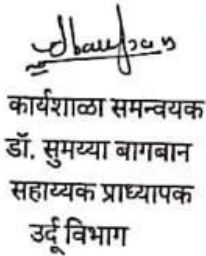 कार्यशाळा समन्वयक
डॉ. सुमय्या बागबान
सहाय्यक प्राध्यापक
उर्दू विभाग